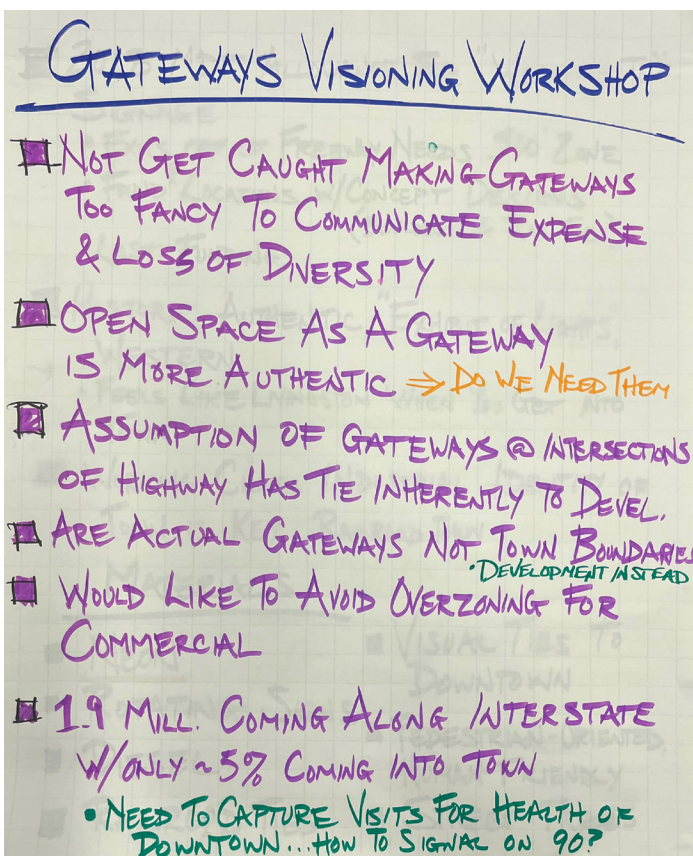 GATEWAYS VISIONING WORKSHOP
NOT GET CAUGHT MAKING GATEWAYS
TOO FANCY TO COMMUNICATE EXPENSE
& LOSS OF DIVERSITY
OPEN SPACE AS A GATEWAY
IS MORE AUTHENTIC ⇒ DO WE NEED THEM
ASSUMPTION OF GATEWAYS @ INTERSECTIONS
OF HIGHWAY HAS TIE INHERENTLY TO DEVEL.
ARE ACTUAL GATEWAYS NOT TOWN BOUNDARIES
• DEVELOPMENT INSTEAD
WOULD LIKE TO AVOID OVERZONING FOR
COMMERCIAL
1.9 MILL. COMING ALONG INTERSTATE
W/ONLY ~5% COMING INTO TOWN
• NEED TO CAPTURE VISITS FOR HEALTH OF
DOWNTOWN... HOW TO SIGNAL ON 90?
VISUAL TIES TO
DOWNTOWN
PEDESTRIAN-ORIENTED,